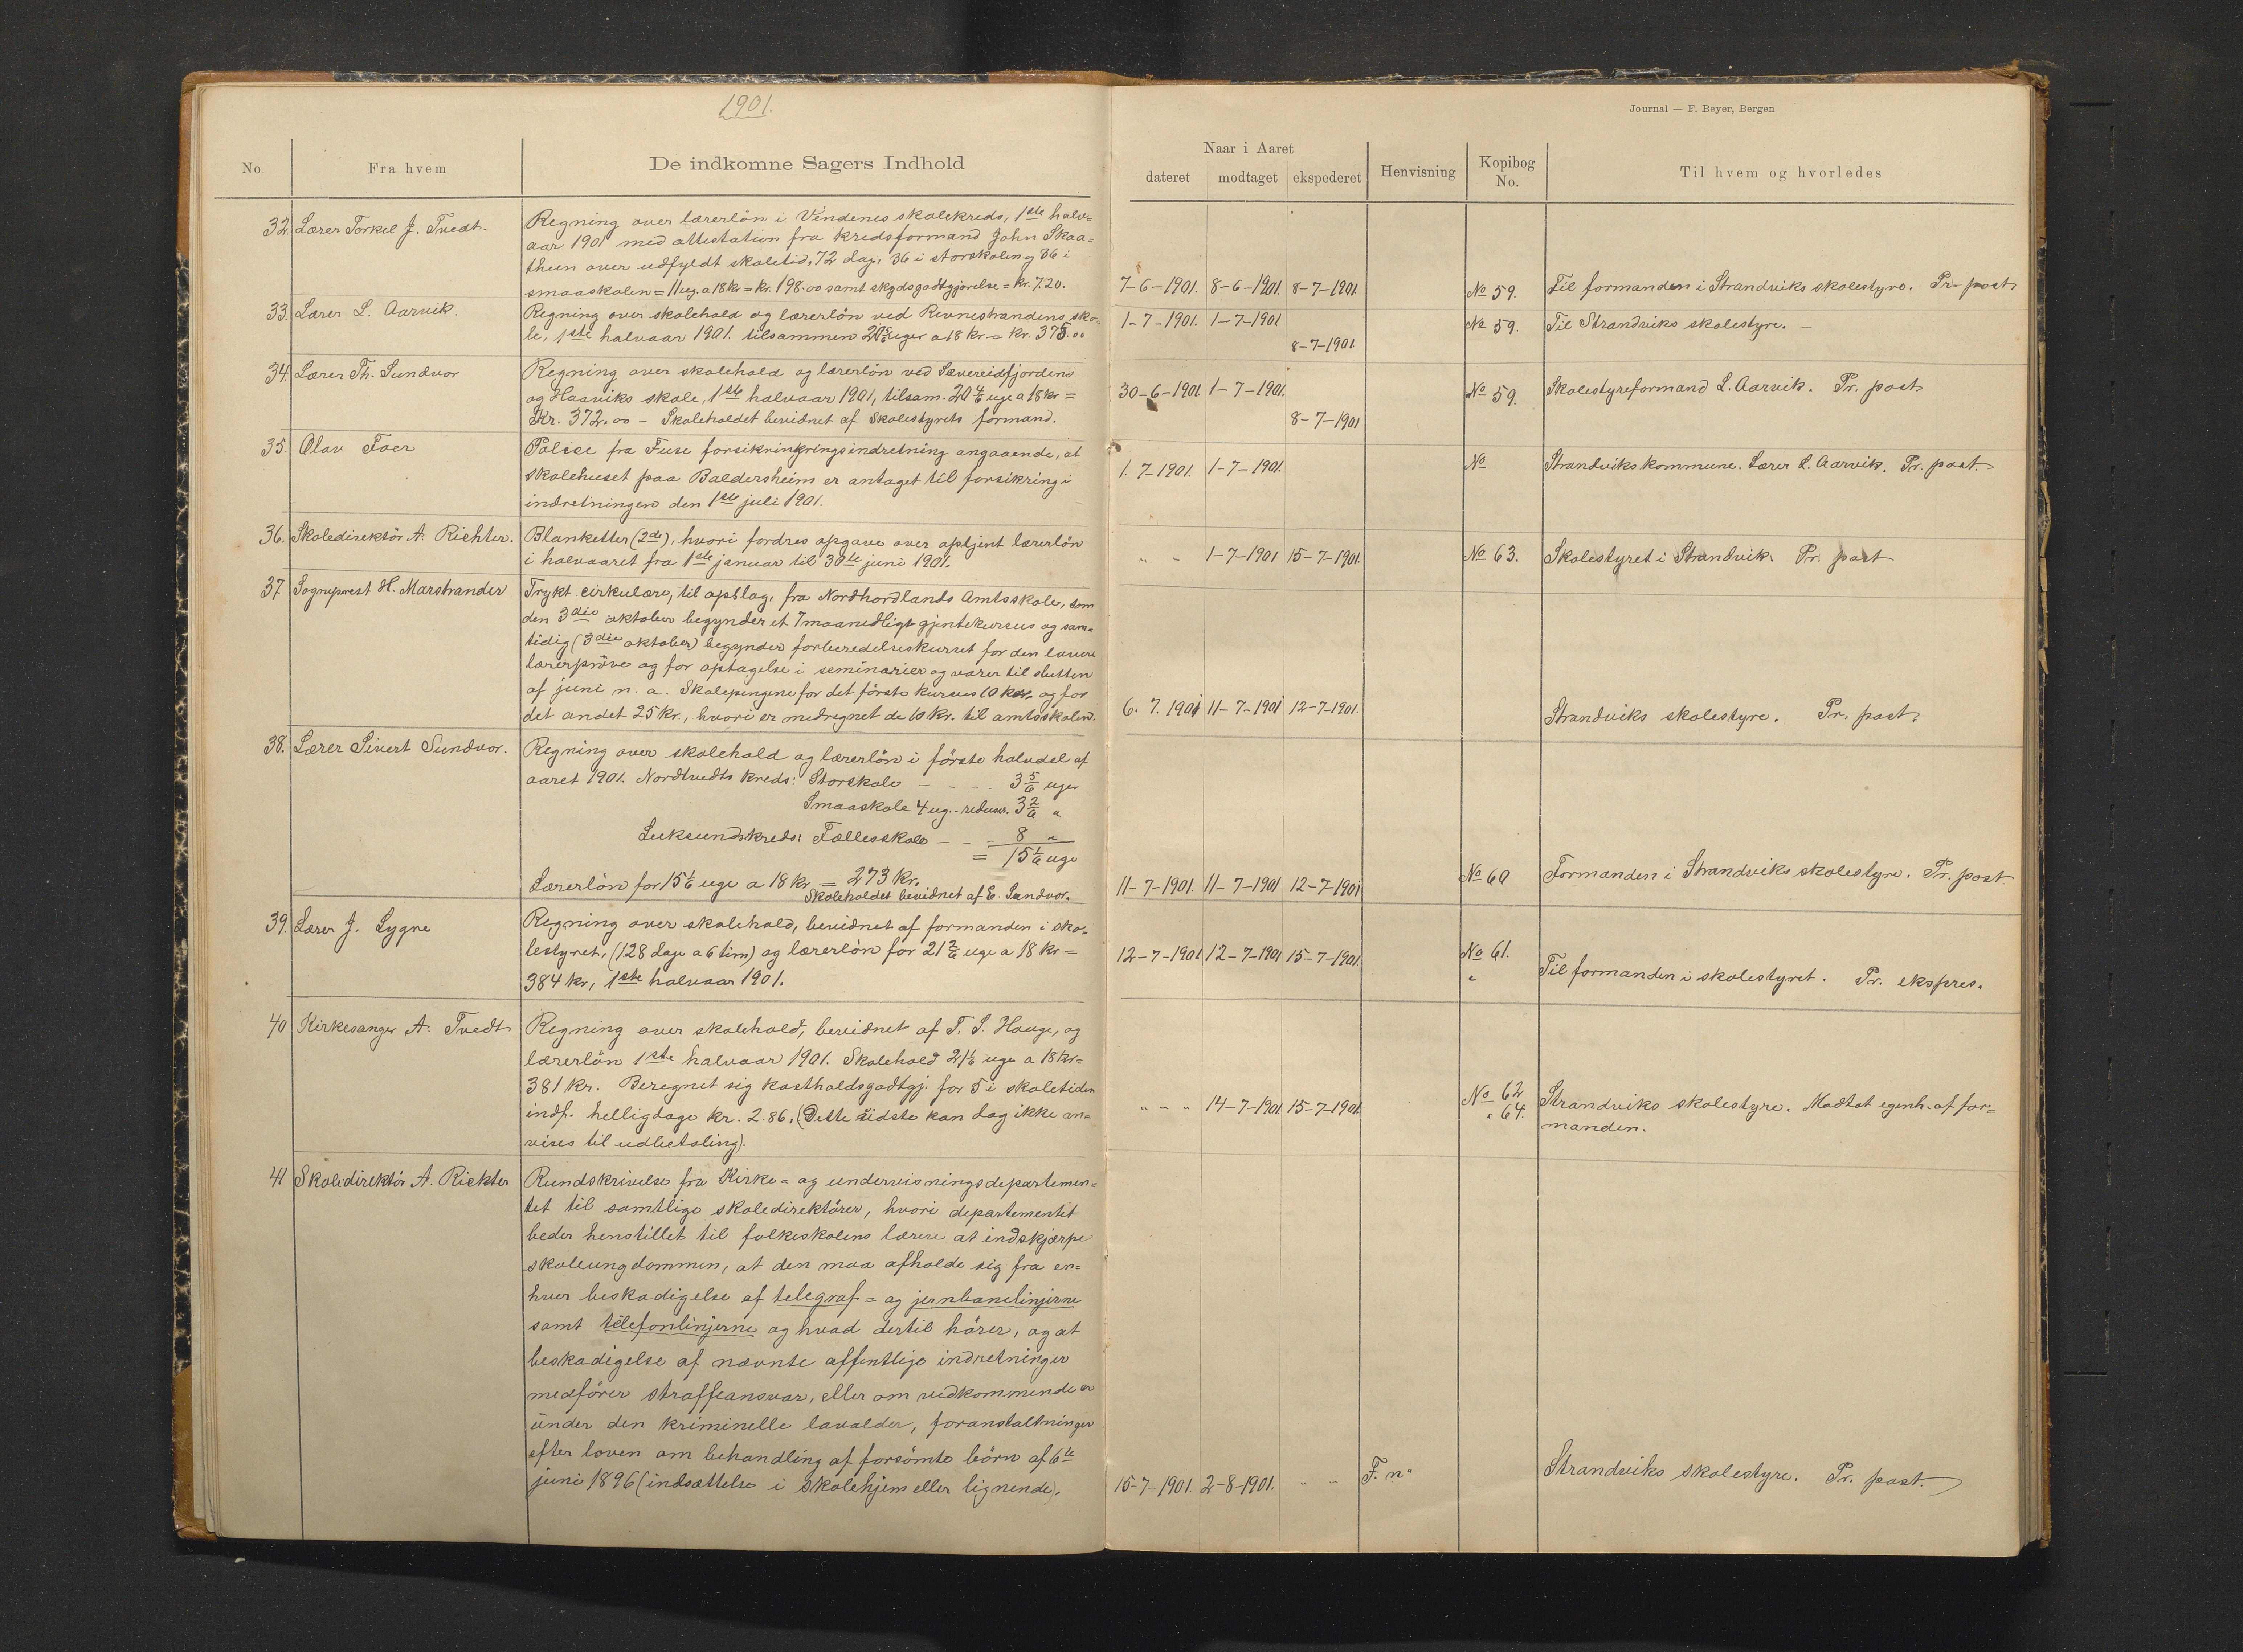 1901.
Journal — F. Beyer, Bergen
No
Fra hvem
De indkomne Sagers Indhold
Naar i Aaret
dateret
modtaget
ekspederet
Henvisning
Kopibog
No.
Til hvem og hvorledes
32. Lærer Torkel J. Tvedt.
Regning over lærerlön i Vindenes skolekreds, 1ste halv-
aar 1901 med attestation fra kredsformand John Skaa-
theen over udfyldt skoletid, 72 dag, 36 i storskolen og 36 i
smaaskolen = 11 ug. a 18 kr = kr. 198.00 samt skydsgodtgjörelse = kr. 7.20.
7-6-1901. 8-6-1901. 8-7-1901
No 59. Til formanden i Strandviks skolestyre. Pr. post
33. Lærer L. Aarvik.
Regning over skolehold og lærerlön ved Revnestrandens sko-
le, 1ste halvaar 1901. tilsammen uger a 18 kr = kr. 375.00
1-7-1901. 1-7-1901
8-7-1901
No 59. Til Strandviks skolestyre. —
34. Lærer Th. Sundvor
Regning over skolehold og lærerlön ved Sævereidfjordens
og Haaviks skole, 1ste halvaar 1901, tilsam. 20 4/6 uge a 18 kr =
Kr. 372.00 - Skoleholdet bevidnet af Skolestyrets formand.
30-6-1901 1-7-1901.
8-7-1901
No 59. Skolestyreformand L. Aarvik. Pr. post
35. Olav Toer
Police fra Fuse forsikringringsindretning angaaende, at
skolehuset paa Baldersheim er antaget til forsikring i
indretningen den 1ste juli 1901.
1. 7-1901. 1-7-1901.
No Strandviks kommune. Lærer L. Aarvik. Pr. post.
36. Skoledirektör A. Richter.
Blanketter (2de), hvori fordres opgave over optjent lærerlön
i halvaaret fra 1ste januar til 30te juni 1901.
" " 1-7-1901 15-7-1901.
No 63. Skolestyret i Strandvik. Pr. post
37 Sogneprest H. Marstrander
Trykt cirkulære, til opslag, fra Nordhordlands Amtsskole, som
den 3die oktober begynder et 7 maanedligt gjentekursus og sam-
tidig (3die oktober) begynder forberedelseskurset for den lavere
lærerpröve og for optagelse i seminarier og varer til slutten
af juni n. a. Skolepengene for det förste kursus 10 kr. og for
det andet 25 kr., hvori er medregnet de 10 kr. til amtsskolen.
6. 7. 1901 11-7-1901 12-7-1901.
Strandviks skolestyre. Pr. post.
38. Lærer Sivert Sundvor.
Regning over skolehold og lærerlön i förste halvdel af
aaret 1901. Nordtvedts kreds: Storskole - - - - 3 5/6 uger
Smaaskole 4 ug. - reduser. 3 2/6 "
Luksundskreds: Fællesskole - - - 8 "
= 15 1/6 uge
Lærerlön for 15 1/6 uge a 18 kr = 273 kr.
Skoleholdet bevidnet af E. Sandvor.
11-7-1901. 11-7-1901 12-7-1901
No 60 Formanden i Strandviks skolestyre. Pr. post.
39. Lærer J. Lygre
Regning over skolehold, bevidnet af formanden i sko-
lestyret, (128 dage a 6 tim) og lærerlön for 21 2/6 uge a 18 kr =
384 kr, 1ste halvaar 1901.
12-7-1901 12-7-1901 15-7-1901
No 61.
" Til formanden i skolestyret. Pr. ekspres.
40 Kirkesanger A. Tvedt
Regning over skolehold, bevidnet af T. S. Hauge, og
lærerlön 1ste halvaar 1901. Skolehold 21 1/6 uge a 18 kr =
381 kr. Beregnet sig kostholdsgodtgj. for 5 i skoletiden
indf. helligdage kr. 2.86. (Dette sidste kan dog ikke an-
vises til udbetaling).
" " " 14-7-1901 15-7-1901
No 62
" 64. Strandviks skolestyre. Modtat egenh. af for-
manden.
41 Skoledirektör A. Richter
Rundskrivelse fra Kirke- og undervisningsdepartemen-
tet til samtlige skoledirektörer, hvori departementet
beder henstillet til folkeskolens lærere at indskjærpe
skoleungdommen, at den maa afholde sig fra en-
hver beskadigelse af telegraf- og jernbanelinjerne
samt telefonlinjerne og hvad dertil hörer, og at
beskadigelse af nævnte offentlige indretninger
medförer straffeansvar, eller om vedkommende er
under den kriminelle lavalder, foranstaltninger
efter loven om behandling af forsömte börn af 6te
juni 1896 (indsættelse i skolehjem eller lignende).
15-7-1901. 2-8-1901. " "
F. n"
Strandviks skolestyre. Pr. post.